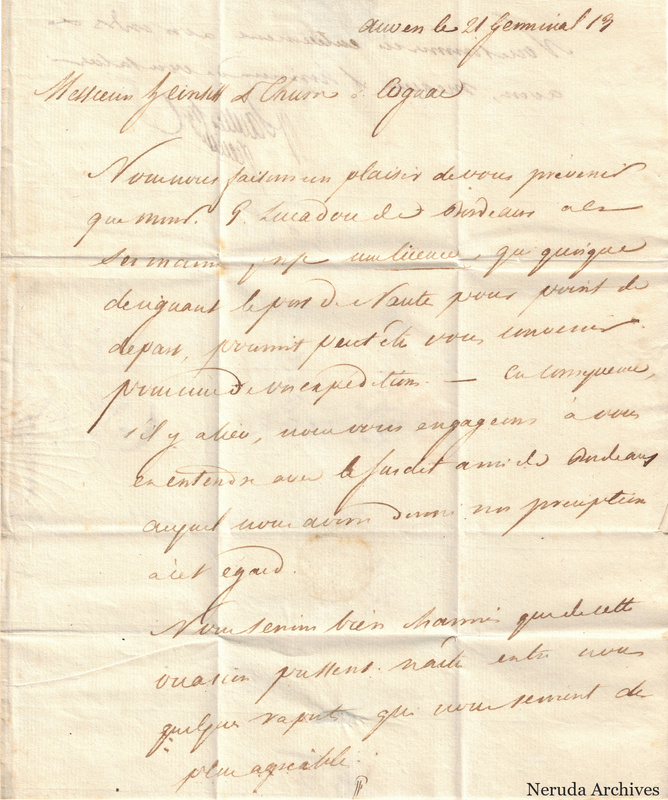 le 21 Germinal 13
Messieurs à Cognac
Nous nous faisons un plaisir de vous prévenir
que mons. G. de Bordeaux a en
ses mains une licence, qui quoique
désignant le port de Nante pour point de
départ, pourroit peut être vous convenir
pour une de vos expeditions. — En consequence,
s'il y a lieu, nous vous engageons à vous
en entendre avec le susdit ami de Bordeaux
auquel nous avons donné nos
à cet égard.
Nous serions bien charmés que de cette
occasion pussent naitre entre nous
quelques raports qui nous seroient de
plus agréable.
Neruda Archives